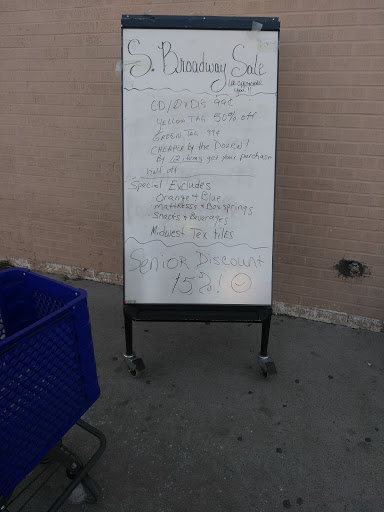 S. Broadway Sale
we appreciate
you!!
CD/DVD's 99¢
Yellow TAG 50% off
GREEN TAG 99¢
CHEAPER by the DOZEN!
By 12 items get your purchase
half off
Special Excludes
Orange & Blue
mattresses & Boxsprings
Snacks & Beverages
Midwest Textiles
SENIOR DISCOUNT
15%!